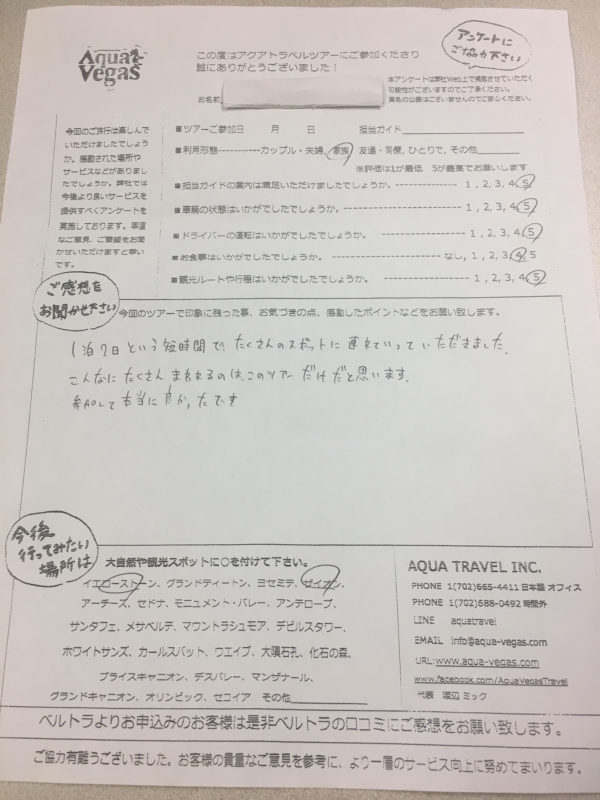 Aqua Vegas
この度はアクアトラベルツアーにご参加くださり
誠にありがとうございました！
アンケートに
ご協力下さい
本アンケートは弊社Web上で掲載させていただく
可能性がございますのでご了承ください。
実名の公表はございませんのでご安心ください。
お名前
今回のご旅行は楽しんで
いただけましたでしょう
か。感動された場所や
サービスなどがありまし
たでしょうか。弊社では
今後より良いサービスを
提供すべくアンケートを
実施しております。率直
なご意見、ご要望をお聞
かせいただけますと幸い
です。
■ツアーご参加日　月　日　担当ガイド
■利用形態------------カップル・夫婦、家族、友達・同僚、ひとりで、その他
※評価は1が最低　5が最高でお願いします
■担当ガイドの案内は満足いただけましたでしょうか。---------------- 1 , 2, 3, 4, 5
■車輌の状態はいかがでしたでしょうか。---------------------------- 1 , 2, 3, 4, 5
■ドライバーの運転はいかがでしたでしょうか。-------------------- 1 , 2, 3, 4, 5
■お食事はいかがでしたでしょうか。---------------------------- なし, 1, 2, 3, 4, 5
■観光ルートや行程はいかがでしたでしょうか。-------------------- 1 , 2, 3, 4, 5
ご感想を
お聞かせ下さい
今回のツアーで印象に残った事、お気づきの点、感動したポイントなどをお願い致します。
1泊2日という短時間で、たくさんのスポットに連れていっていただきました。
こんなにたくさんまわれるのは、このツアーだけだと思います。
参加して本当に良かったです
今後
行ってみたい
場所は
大自然や観光スポットに○を付けて下さい。
イエローストーン、グランドティートン、ヨセミテ、ザイオン、
アーチーズ、セドナ、モニュメント・バレー、アンテロープ、
サンタフェ、メサベルデ、マウントラシュモア、デビルスタワー、
ホワイトサンズ、カールスバット、ウエイブ、大隕石孔、化石の森、
ブライスキャニオン、デスバレー、マンザナール、
グランドキャニオン、オリンピック、セコイア　その他
AQUA TRAVEL INC.
PHONE 1(702)665-4411 日本語 オフィス
PHONE 1(702)688-0492 時間外
LINE aquatravel
EMAIL info@aqua-vegas.com
URL:www.aqua-vegas.com
www.facebook.com/AquaVegasTravel
代表 渡辺 ミック
ベルトラよりお申込みのお客様は是非ベルトラの口コミにご感想をお願い致します。
ご協力有難うございました。お客様の貴重なご意見を参考に、より一層のサービス向上に努めてまいります。